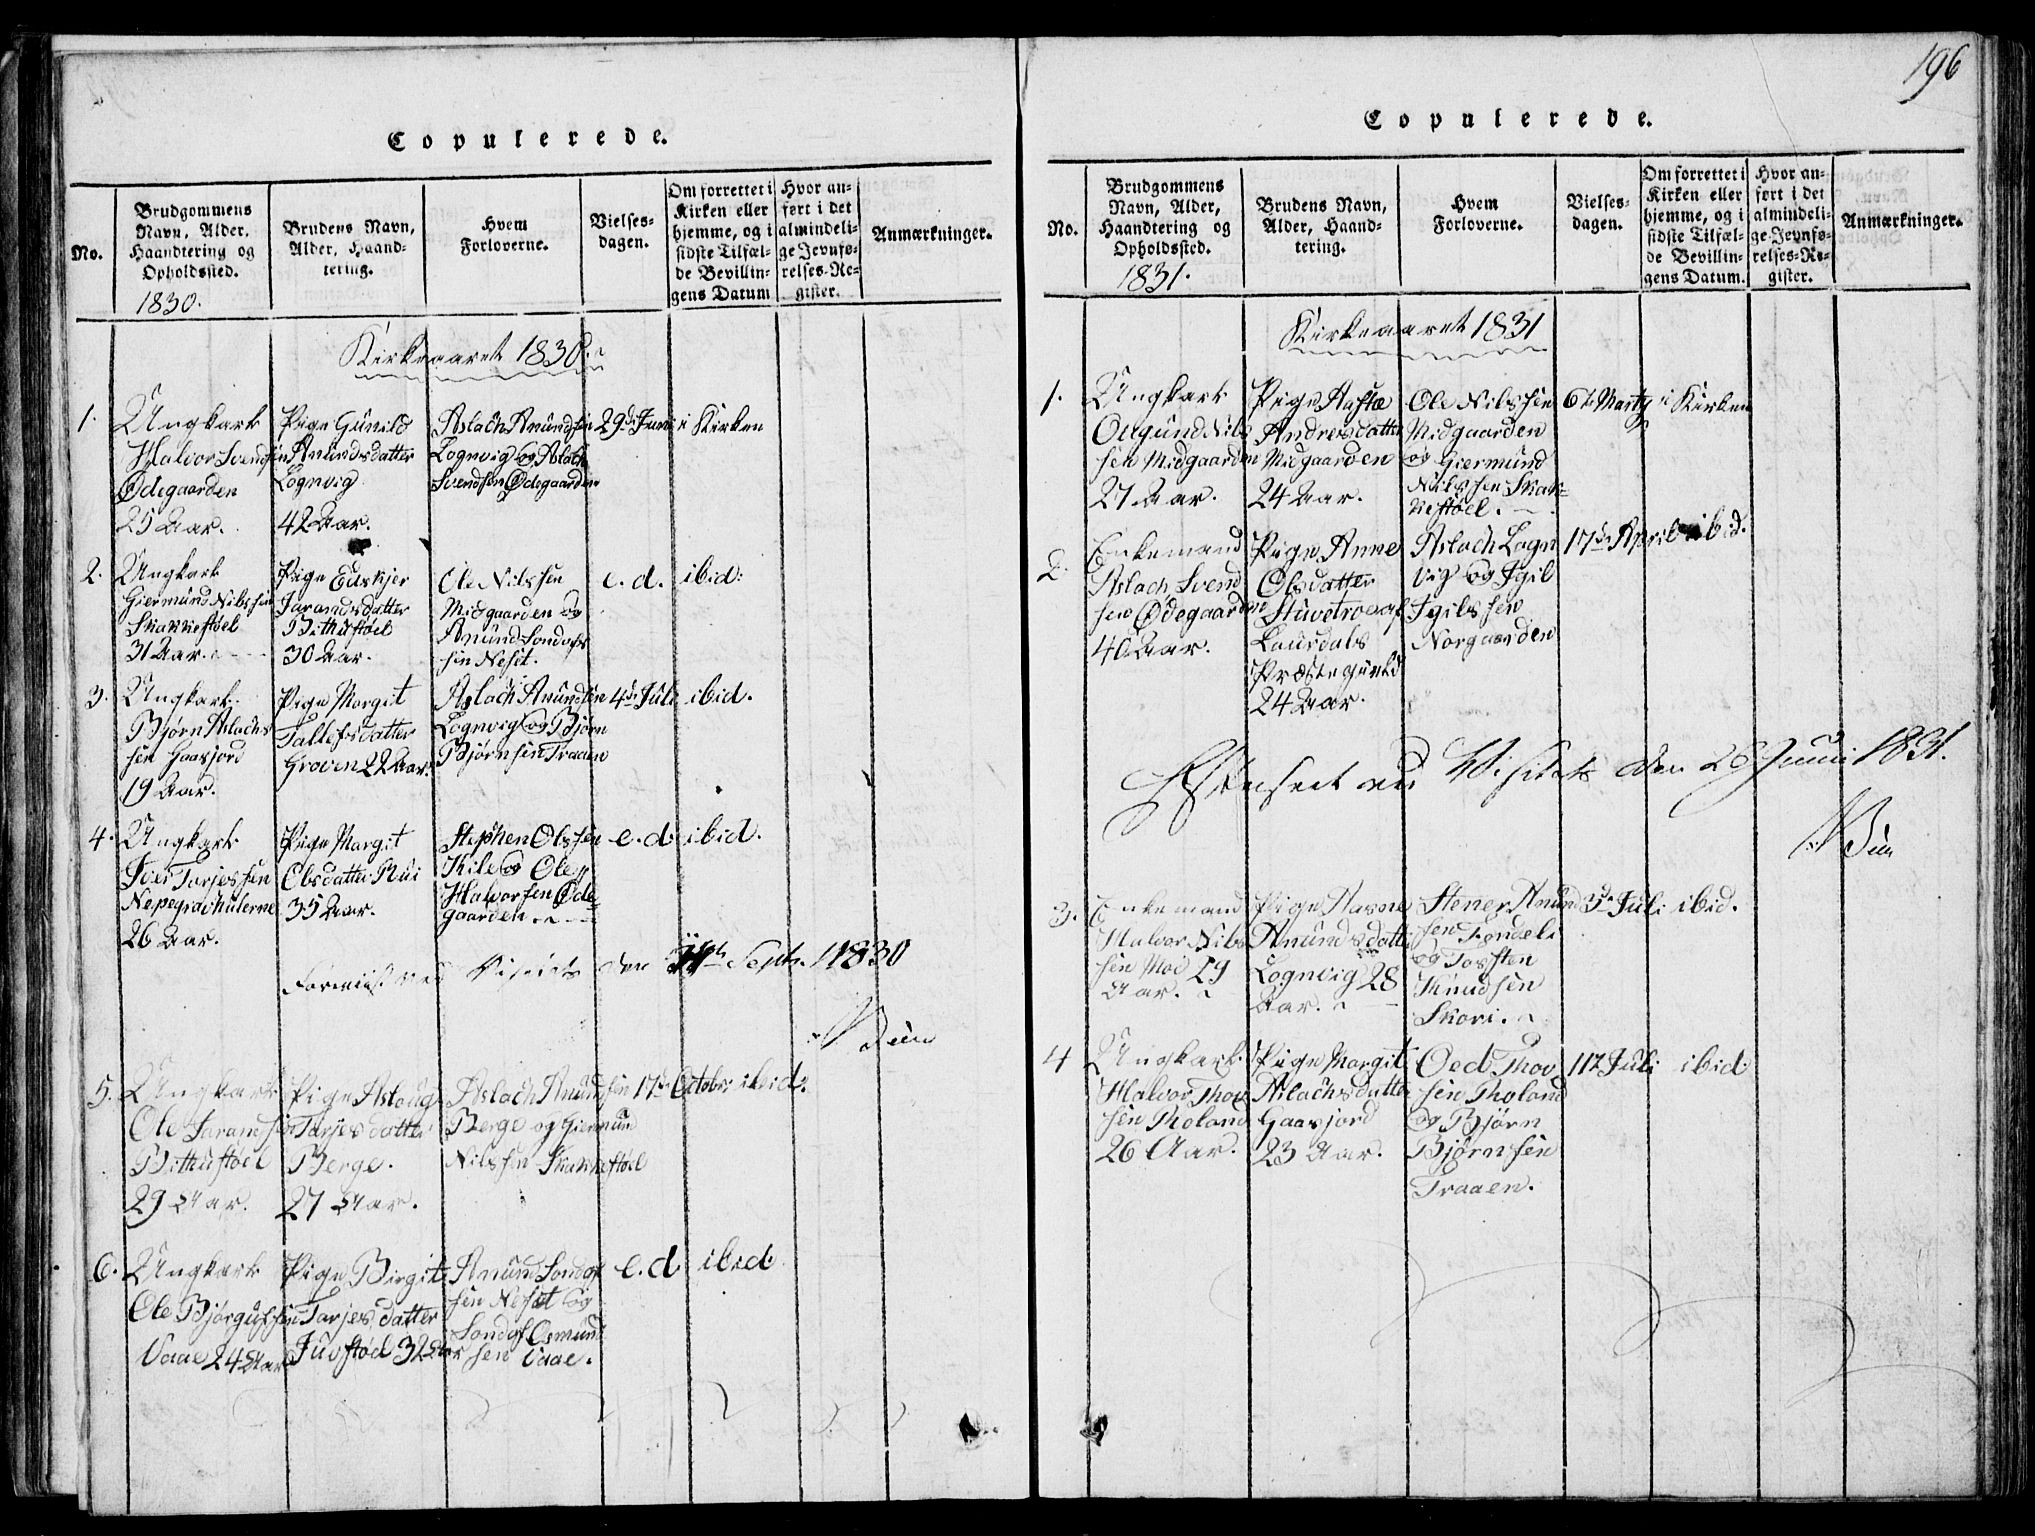 196
Copulerede.
No.
Brudgommens
Navn, Alder,
Haandtering og
Opholdssted.
1830.
Brudens Navn,
Alder, Haand-
tering.
Hvem
Forloverne.
Vielses-
dagen.
Om forrettet i
Kirken eller
hjemme, og i
sidste Tilfæl-
de Bevillin-
gens Datum
Hvor an-
ført i det
almindeli-
ge Jevnfø-
relses-Re-
gister.
Anmærkninger.
Kirkeaaret 1830.
1.
Ungkarl
Halvor Svendsen
Ødegaarden
25 Aar.
Pige Gunild
Anundsdatter
Lognvig
42 Aar.
Aslach Anundsen
Lognvig og Aslach
Svendsen Ødegaarden
29d Juni
i Kirken
2.
Ungkarl
Giermund Nilssen
Skakkestøel
31 Aar.
Pige
Jarandsdatter
Bithustøel
30 Aar.
Ole Nilssen
Midgaarden og
Anund Sondofs
sen Neset.
e. d.
ibid:
3.
Ungkarl.
Bjørn Aslachs
sen Gaasjord
19 Aar.
Pige Margit
Tallefsdatter
Groven 22 Aar.
Aslach Anundsen
Lognvig og Bjørn
Bjørnsen Traaen
4d Juli
ibid.
4.
Ungkarl.
Iver Tarjessen
26 Aar.
Pige Margit
Olsdatter Rui
35 Aar.
Stephen Olssen
Kile og Ole
Halvorsen Øde-
gaarden.
e. d.
ibid.
Foreviist ved Visitats den Septr. 1830
Bun
5.
Ungkarl
Ole Jarandsen
Bithustøel
29 Aar.
Pige Aslaug
Tarjesdatter
Berge.
27 Aar.
Aslach Anundsen
Berge og Giermund
Nilssen Skakkestøel
17d Octobr:
ibid.
6.
Ungkarl
Ole Bjørgufsen
Vaae 24 Aar
Pige Birgit
Tarjesdatter
Juvstøel 32 Aar
Anund Sondofs
sen Neset og
Sondof Osmund
sen Vaae.
e. d
ibid
Copulerede.
No.
Brudgommens
Navn, Alder,
Haandtering og
Opholdssted.
1831.
Brudens Navn,
Alder, Haand-
tering.
Hvem
Forloverne.
Vielses-
dagen.
Om forrettet i
Kirken eller
hjemme, og i
sidste Tilfæl-
de Bevillin-
gens Datum.
Hvor an-
ført i det
almindeli-
ge Jevnfø-
relses-Re-
gister.
Anmærkninger.
Kirkeaaret 1831
1.
Ungkarl
Ougund Nils
sen Midgaarden
27 Aar.
Pige Aaste
Andresdatter
Midgaarden
24 Aar.
Ole Nilssen
Midgaarden
og Giermund
Nilssen Skak-
kestøel.
6t Marty
i Kirken
2.
Enkemand
Aslach Svend
sen Ødegaarden
40 Aar.
Pige Anne
Olsdatter
Laurdals
Præstegield
24 Aar.
Aslach Logn
vig og Igil
Igilssen
Norgaarden
17d April
ibid.
Efterseet ved Visitats den 26 Juni 1831.
Bun
3.
Enkemand
Halvor Nils
sen Moe 29
Aar.
Pige Aasne
Anundsdatter
Lognvig 28
Aar.
Stener Anund
sen
og Tosten
Knudsen
Skori.
3d Juli
ibid.
4
Ungkarl.
Halvor Thov
sen Tholand
26 Aar.
Pige Margit
Aslachsdatter
Gaasjord
23 Aar.
Oed Thov
sen Tholand
og Bjørn
Bjørnsen
Traaen.
17 Juli
ibid